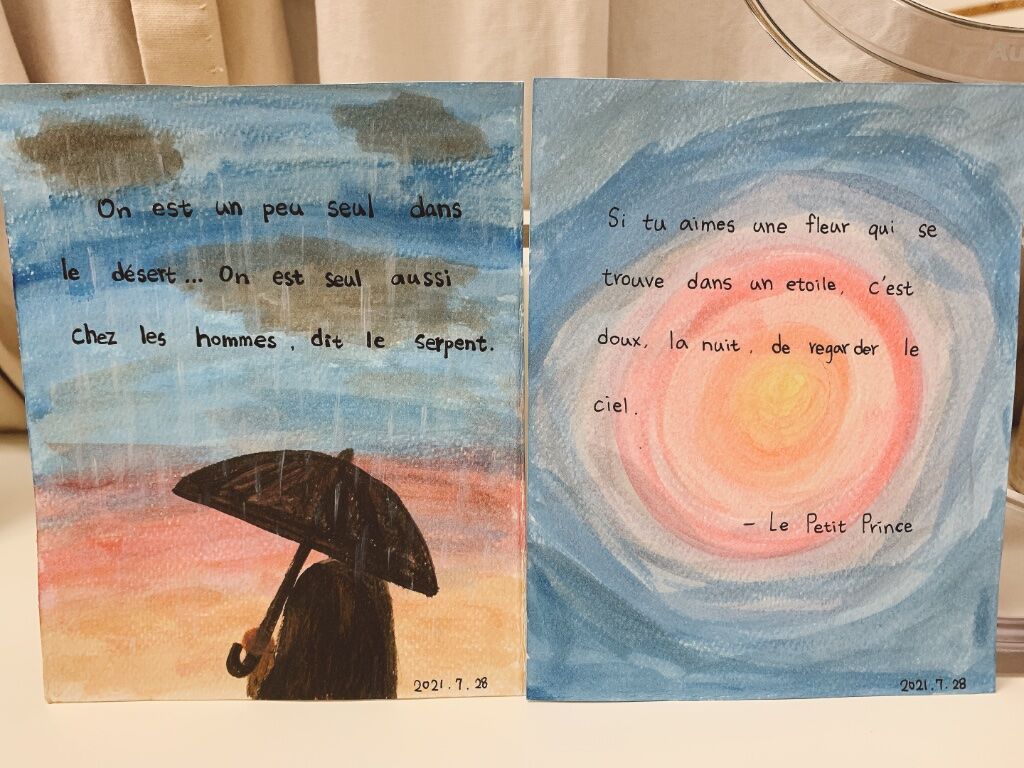 On est un peu seul dans
le désert... On est seul aussi
chez les hommes, dit le serpent.
2021.7.28
Si tu aimes une fleur qui se
trouve dans un etoile, c'est
doux, la nuit, de regarder le
ciel.
- Le Petit Prince
2021.7.28
Au